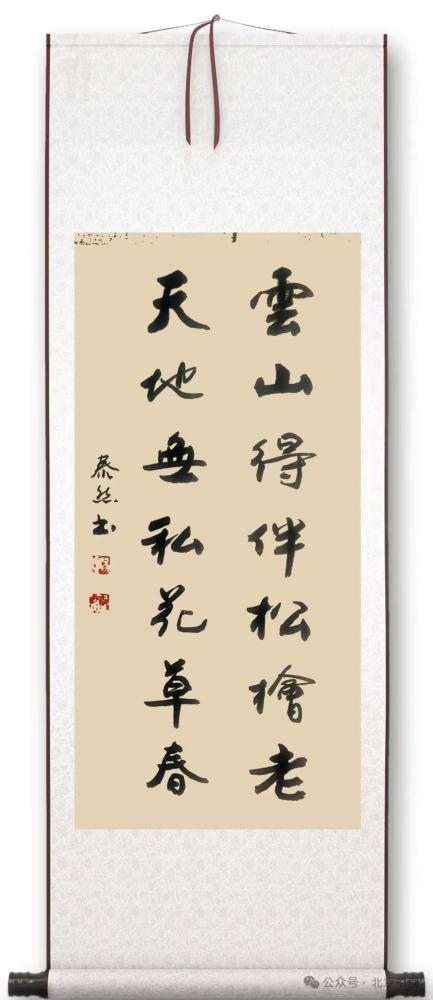 雲山得伴松檜老
天地無私花草春
泰然书
公众号·北京